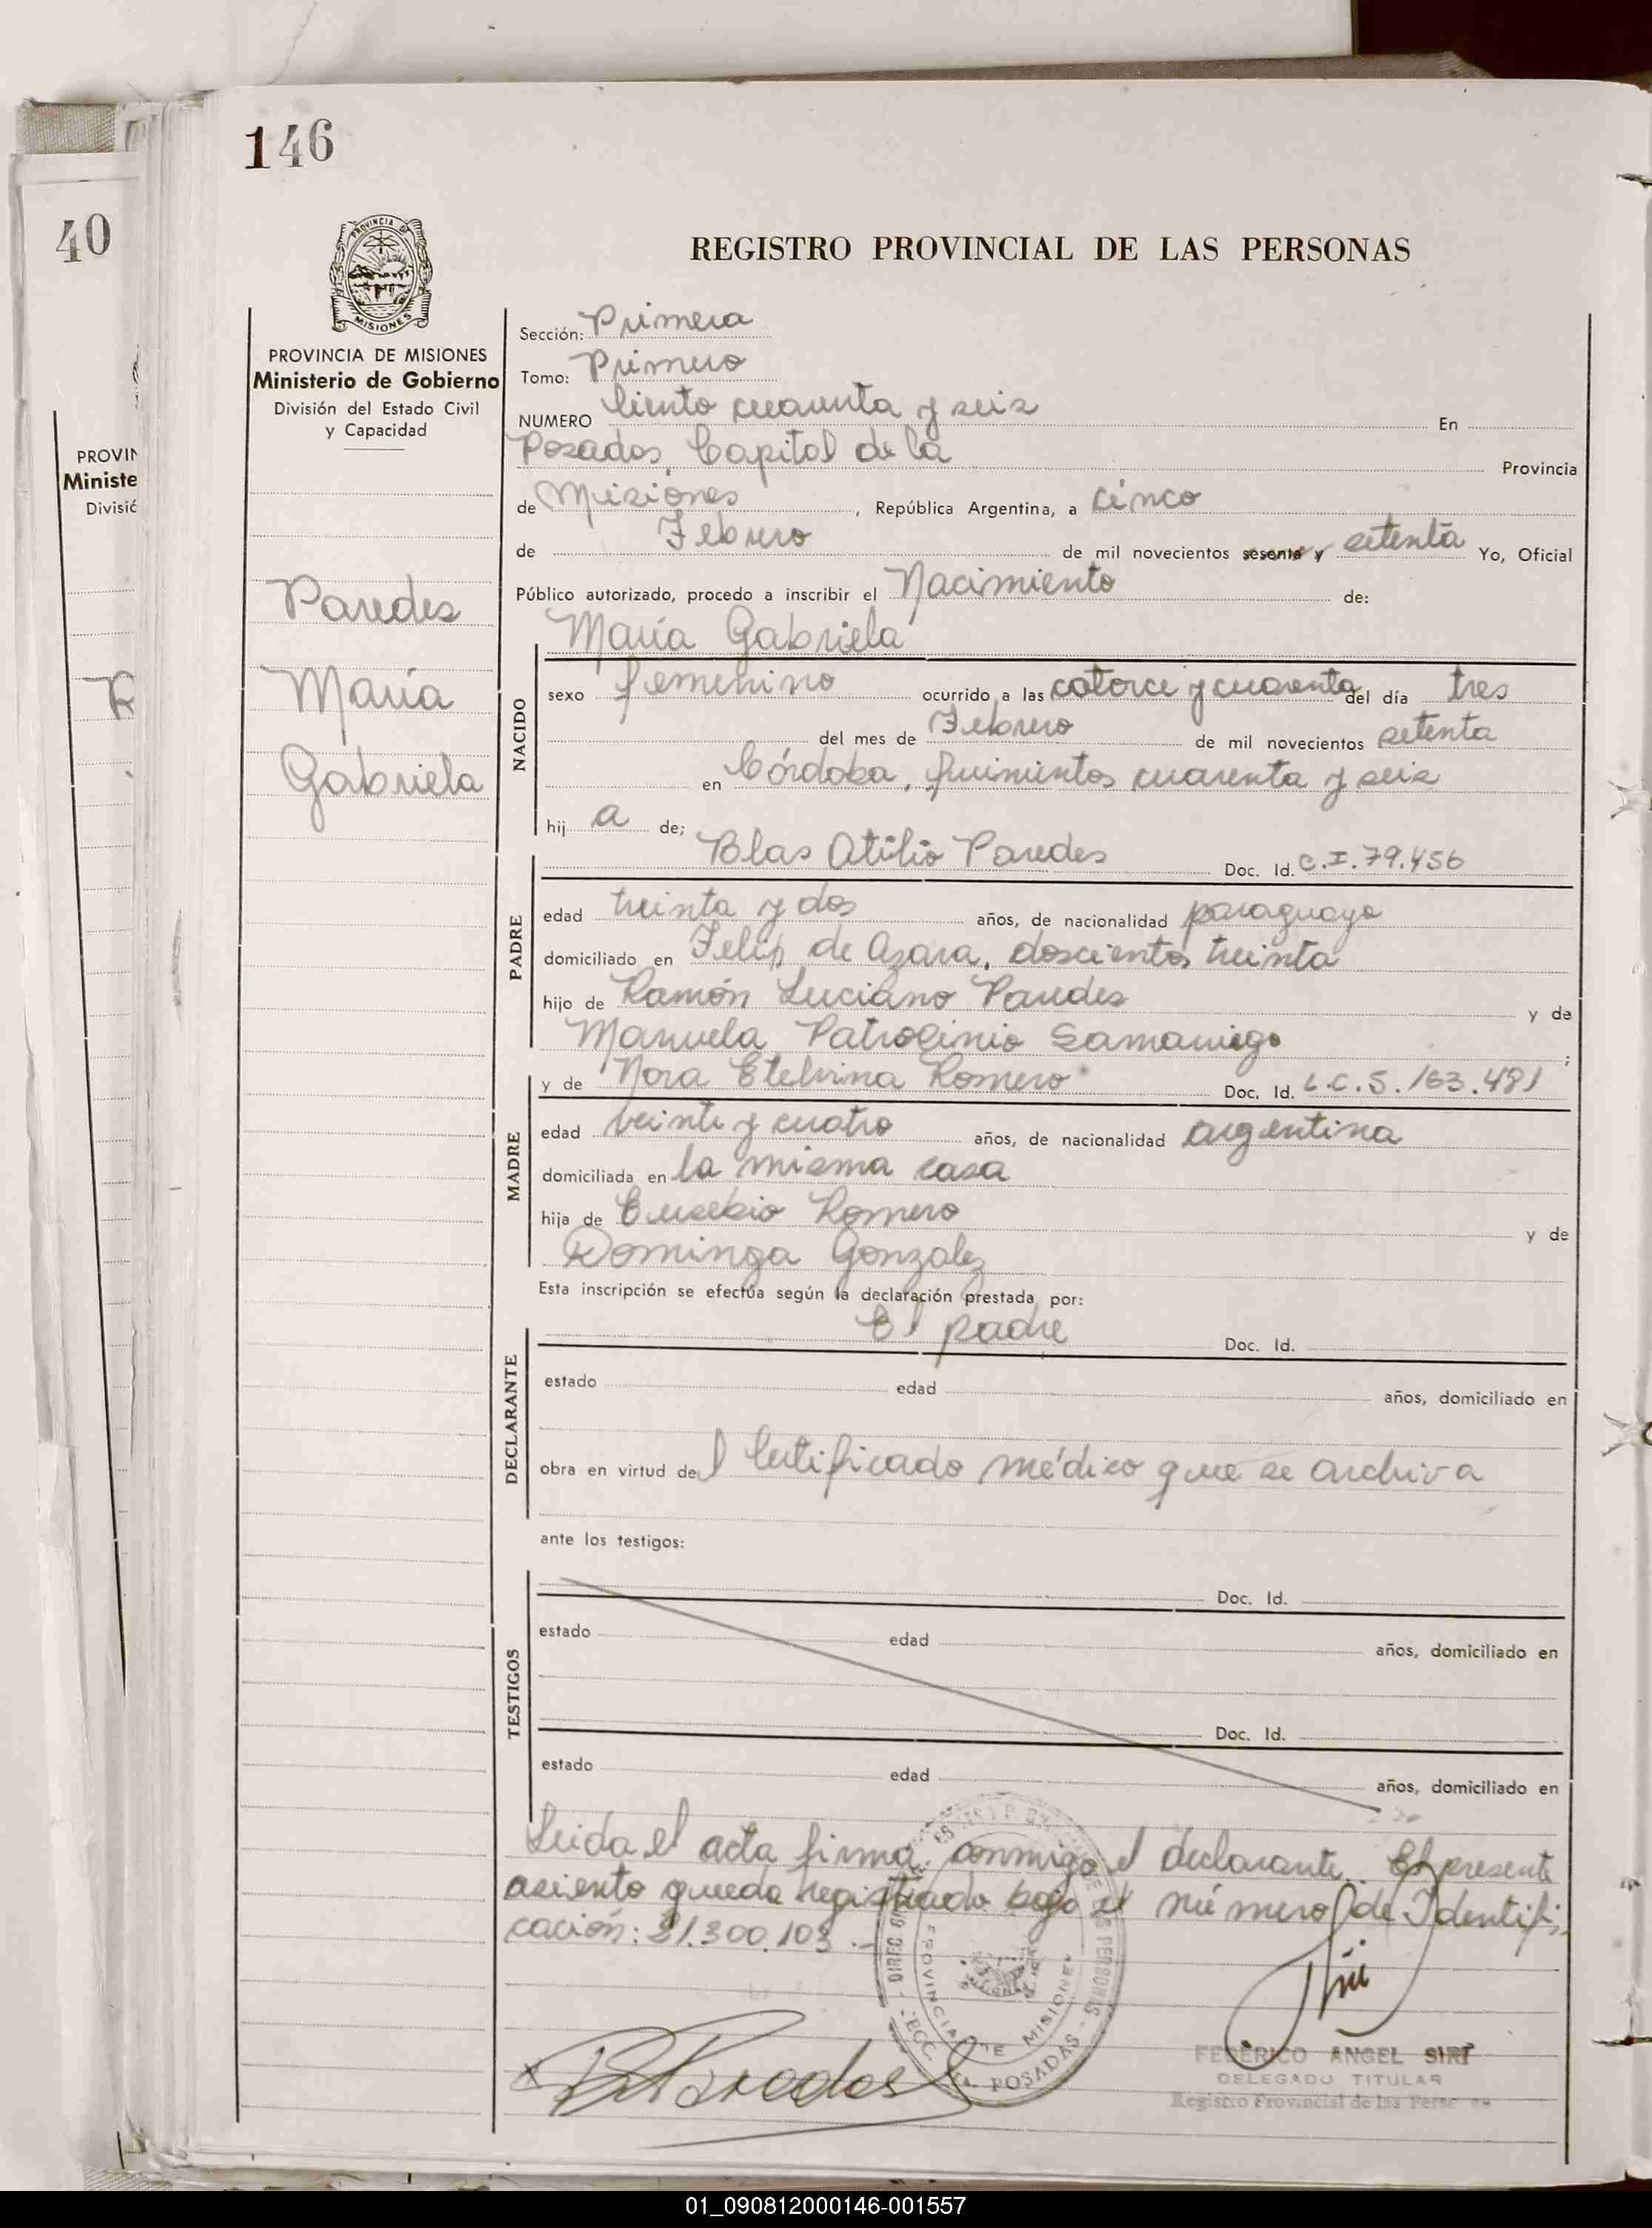 146
40
PROVINCIA DE MISIONES
REGISTRO PROVINCIAL DE LAS PERSONAS
PROVINCIA DE MISIONES
Ministerio de Gobierno
División del Estado Civil
y Capacidad
PROVIN
Ministe
Divisió
Paredes
María
Gabriela
Sección: Primera
Tomo: Primero
NUMERO Ciento cuarenta y seis En
Posadas, Capital de la Provincia
de Misiones, República Argentina, a cinco
de Febrero de mil novecientos sesenta y setenta Yo, Oficial
Público autorizado, procedo a inscribir el Nacimiento de:
María Gabriela
NACIDO
sexo femenino ocurrido a las catorce y cuarenta del día tres
del mes de Febrero de mil novecientos setenta
en Córdoba, quinientos cuarenta y seis
hij a de;
PADRE
Blas Atilio Paredes Doc. Id. C.I.79.456
edad treinta y dos años, de nacionalidad paraguaya
domiciliado en Felix de Azara, doscientos treinta
hijo de Ramón Luciano Paredes y de
Manuela Patrocinio Samaniego ;
MADRE
y de Nora Etelvina Romero Doc. Id. L.C.5.163.481
edad veinte y cuatro años, de nacionalidad argentina
domiciliada en la misma casa
hija de Eusebio Romero y de
Dominga Gonzalez
Esta inscripción se efectúa según la declaración prestada por:
DECLARANTE
El padre Doc. Id.
estado edad años, domiciliado en
obra en virtud del Certificado médico que se archiva
ante los testigos:
TESTIGOS
Doc. Id.
estado edad años, domiciliado en
Doc. Id.
estado edad años, domiciliado en
Leida el acta firma conmigo el declarante. El presente
asiento queda registrado bajo el número de Identifi-
cación: 21.300.103.-
PROVINCIA DE MISIONES
POSADAS
B Paredes
FEDERICO ANGEL SIRI
DELEGADO TITULAR
Registro Provincial de las Personas
01_090812000146-001557